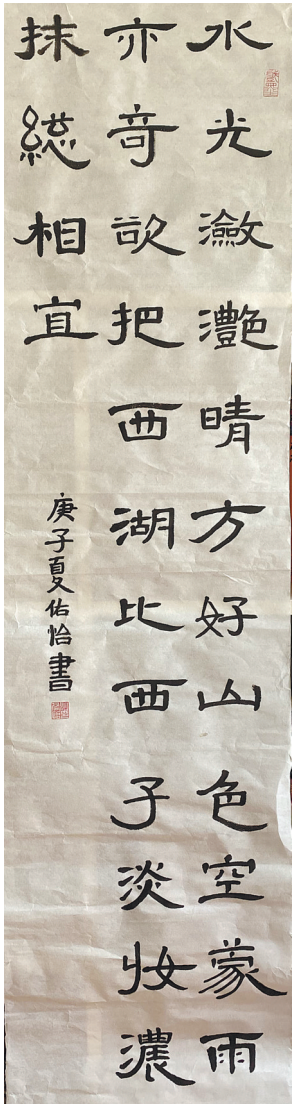 水光瀲灩晴方好山色空蒙雨
亦奇欲把西湖比西子淡妝濃
抹總相宜
庚子夏佑怡書